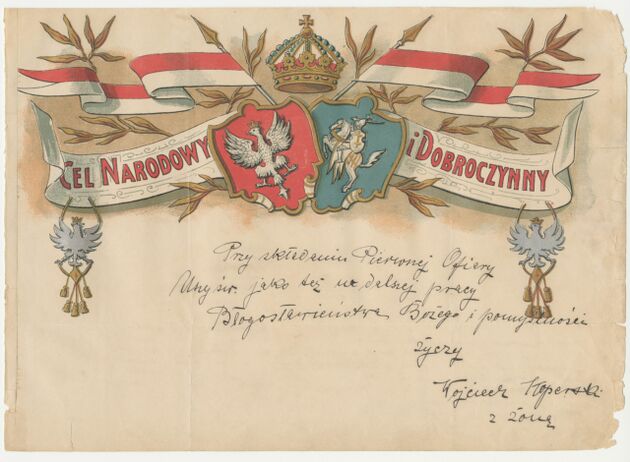 CEL NARODOWY
i DOBROCZYNNY
Przy składaniu Pierwnej Ofiary
Mszy św. jako też na dalnej pracy
Błogosławieństwa Bożego i pomyślności
życzy
Wojciech
z żoną